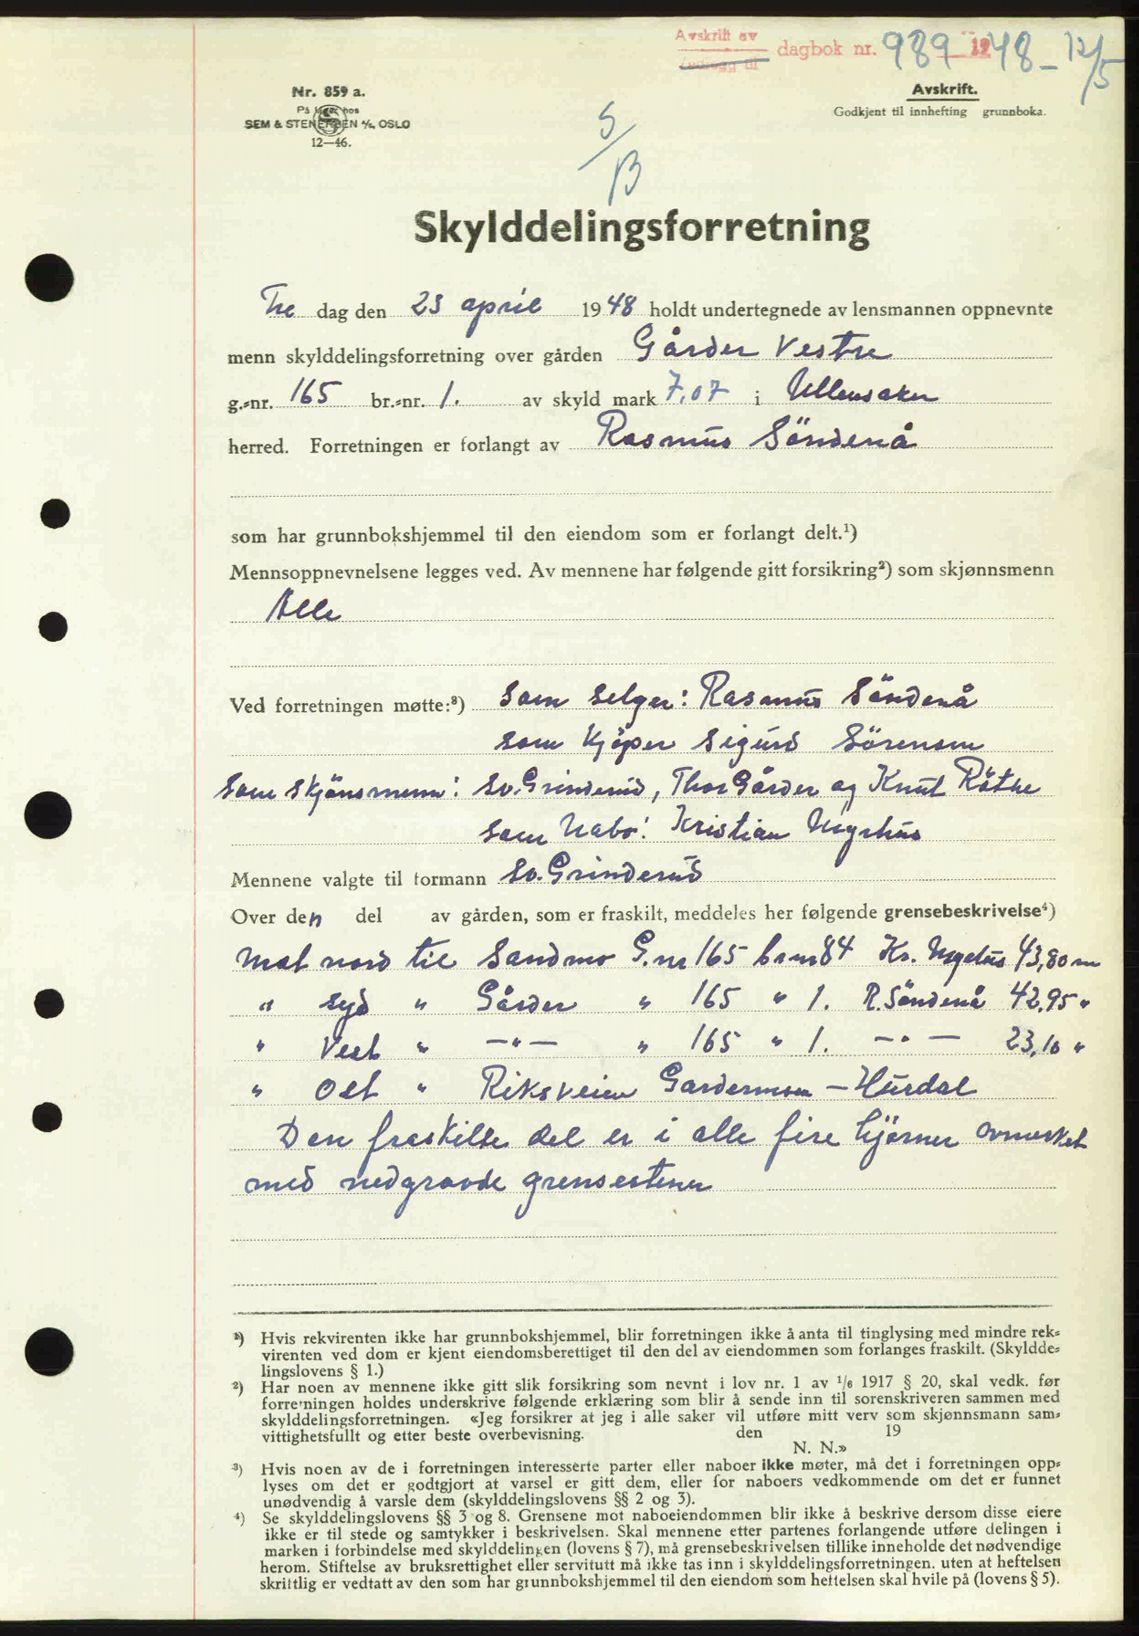 Avskrift av
dagbok nr. 989 1948 - 12/5
Nr. 859 a.
På lager hos
SEM & STENERSEN A/S, OSLO
12—46.
Avskrift.
Godkjent til innhefting grunnboka.
S/B
Skylddelingsforretning
Fre dag den 23 april 1948 holdt undertegnede av lensmannen oppnevnte
menn skylddelingsforretning over gården Gårder Vestre
g.-nr. 165 br.-nr. 1. av skyld mark 7,07 i Ullensaker
herred. Forretningen er forlangt av Rasmus Söndenå
som har grunnbokshjemmel til den eiendom som er forlangt delt.¹)
Mennsoppnevnelsene legges ved. Av mennene har følgende gitt forsikring²) som skjønnsmenn
Alle
Ved forretningen møtte:³) Som Selger: Rasmus Söndenå
Som Kjöper Sigurd Sörensen
Som Skjönsmenn: Sv. Grinderud, Thor Gårder og Knut Röthe
Som Nabo: Kristian Myrhus
Mennene valgte til formann Sv. Grinderud
Over den del av gården, som er fraskilt, meddeles her følgende grensebeskrivelse⁴)
Mot nord til Sandmo G.nr 165 br nr 84 Kr. Myrhus 43,80 m
" syd " Gårder " 165 " 1. R. Söndenå 42,95 "
" Vest " —"— " 165 " 1. —"— 23,10 "
" Ost " Riksveien Gardermoen - Hurdal
Den fraskilte del er i alle fire hjørner avmerket
med nedgravde grensestener
¹) Hvis rekvirenten ikke har grunnbokshjemmel, blir forretningen ikke å anta til tinglysing med mindre rek-
virenten ved dom er kjent eiendomsberettiget til den del av eiendommen som forlanges fraskilt. (Skyldde-
lingslovens § 1.)
²) Har noen av mennene ikke gitt slik forsikring som nevnt i lov nr. 1 av 1/6 1917 § 20, skal vedk. før
forretningen holdes underskrive følgende erklæring som blir å sende inn til sorenskriveren sammen med
skylddelingsforretningen. «Jeg forsikrer at jeg i alle saker vil utføre mitt verv som skjønnsmann sam-
vittighetsfullt og etter beste overbevisning. den 19
N. N.»
³) Hvis noen av de i forretningen interesserte parter eller naboer ikke møter, må det i forretningen opp-
lyses om det er godtgjort at varsel er gitt dem, eller for naboers vedkommende om det er funnet
unødvendig å varsle dem (skylddelingslovens §§ 2 og 3).
⁴) Se skylddelingslovens §§ 3 og 8. Grensene mot naboeiendommen blir ikke å beskrive dersom disse eiere
ikke er til stede og samtykker i beskrivelsen. Skal mennene etter partenes forlangende utføre delingen i
marken i forbindelse med skylddelingen (lovens § 7), må grensebeskrivelsen tillike inneholde det nødvendige
herom. Stiftelse av bruksrettighet eller servitutt må ikke tas inn i skylddelingsforretningen, uten at heftelsen
skriftlig er vedtatt av den som har grunnbokshjemmel til den eiendom som heftelsen skal hvile på (lovens § 5).